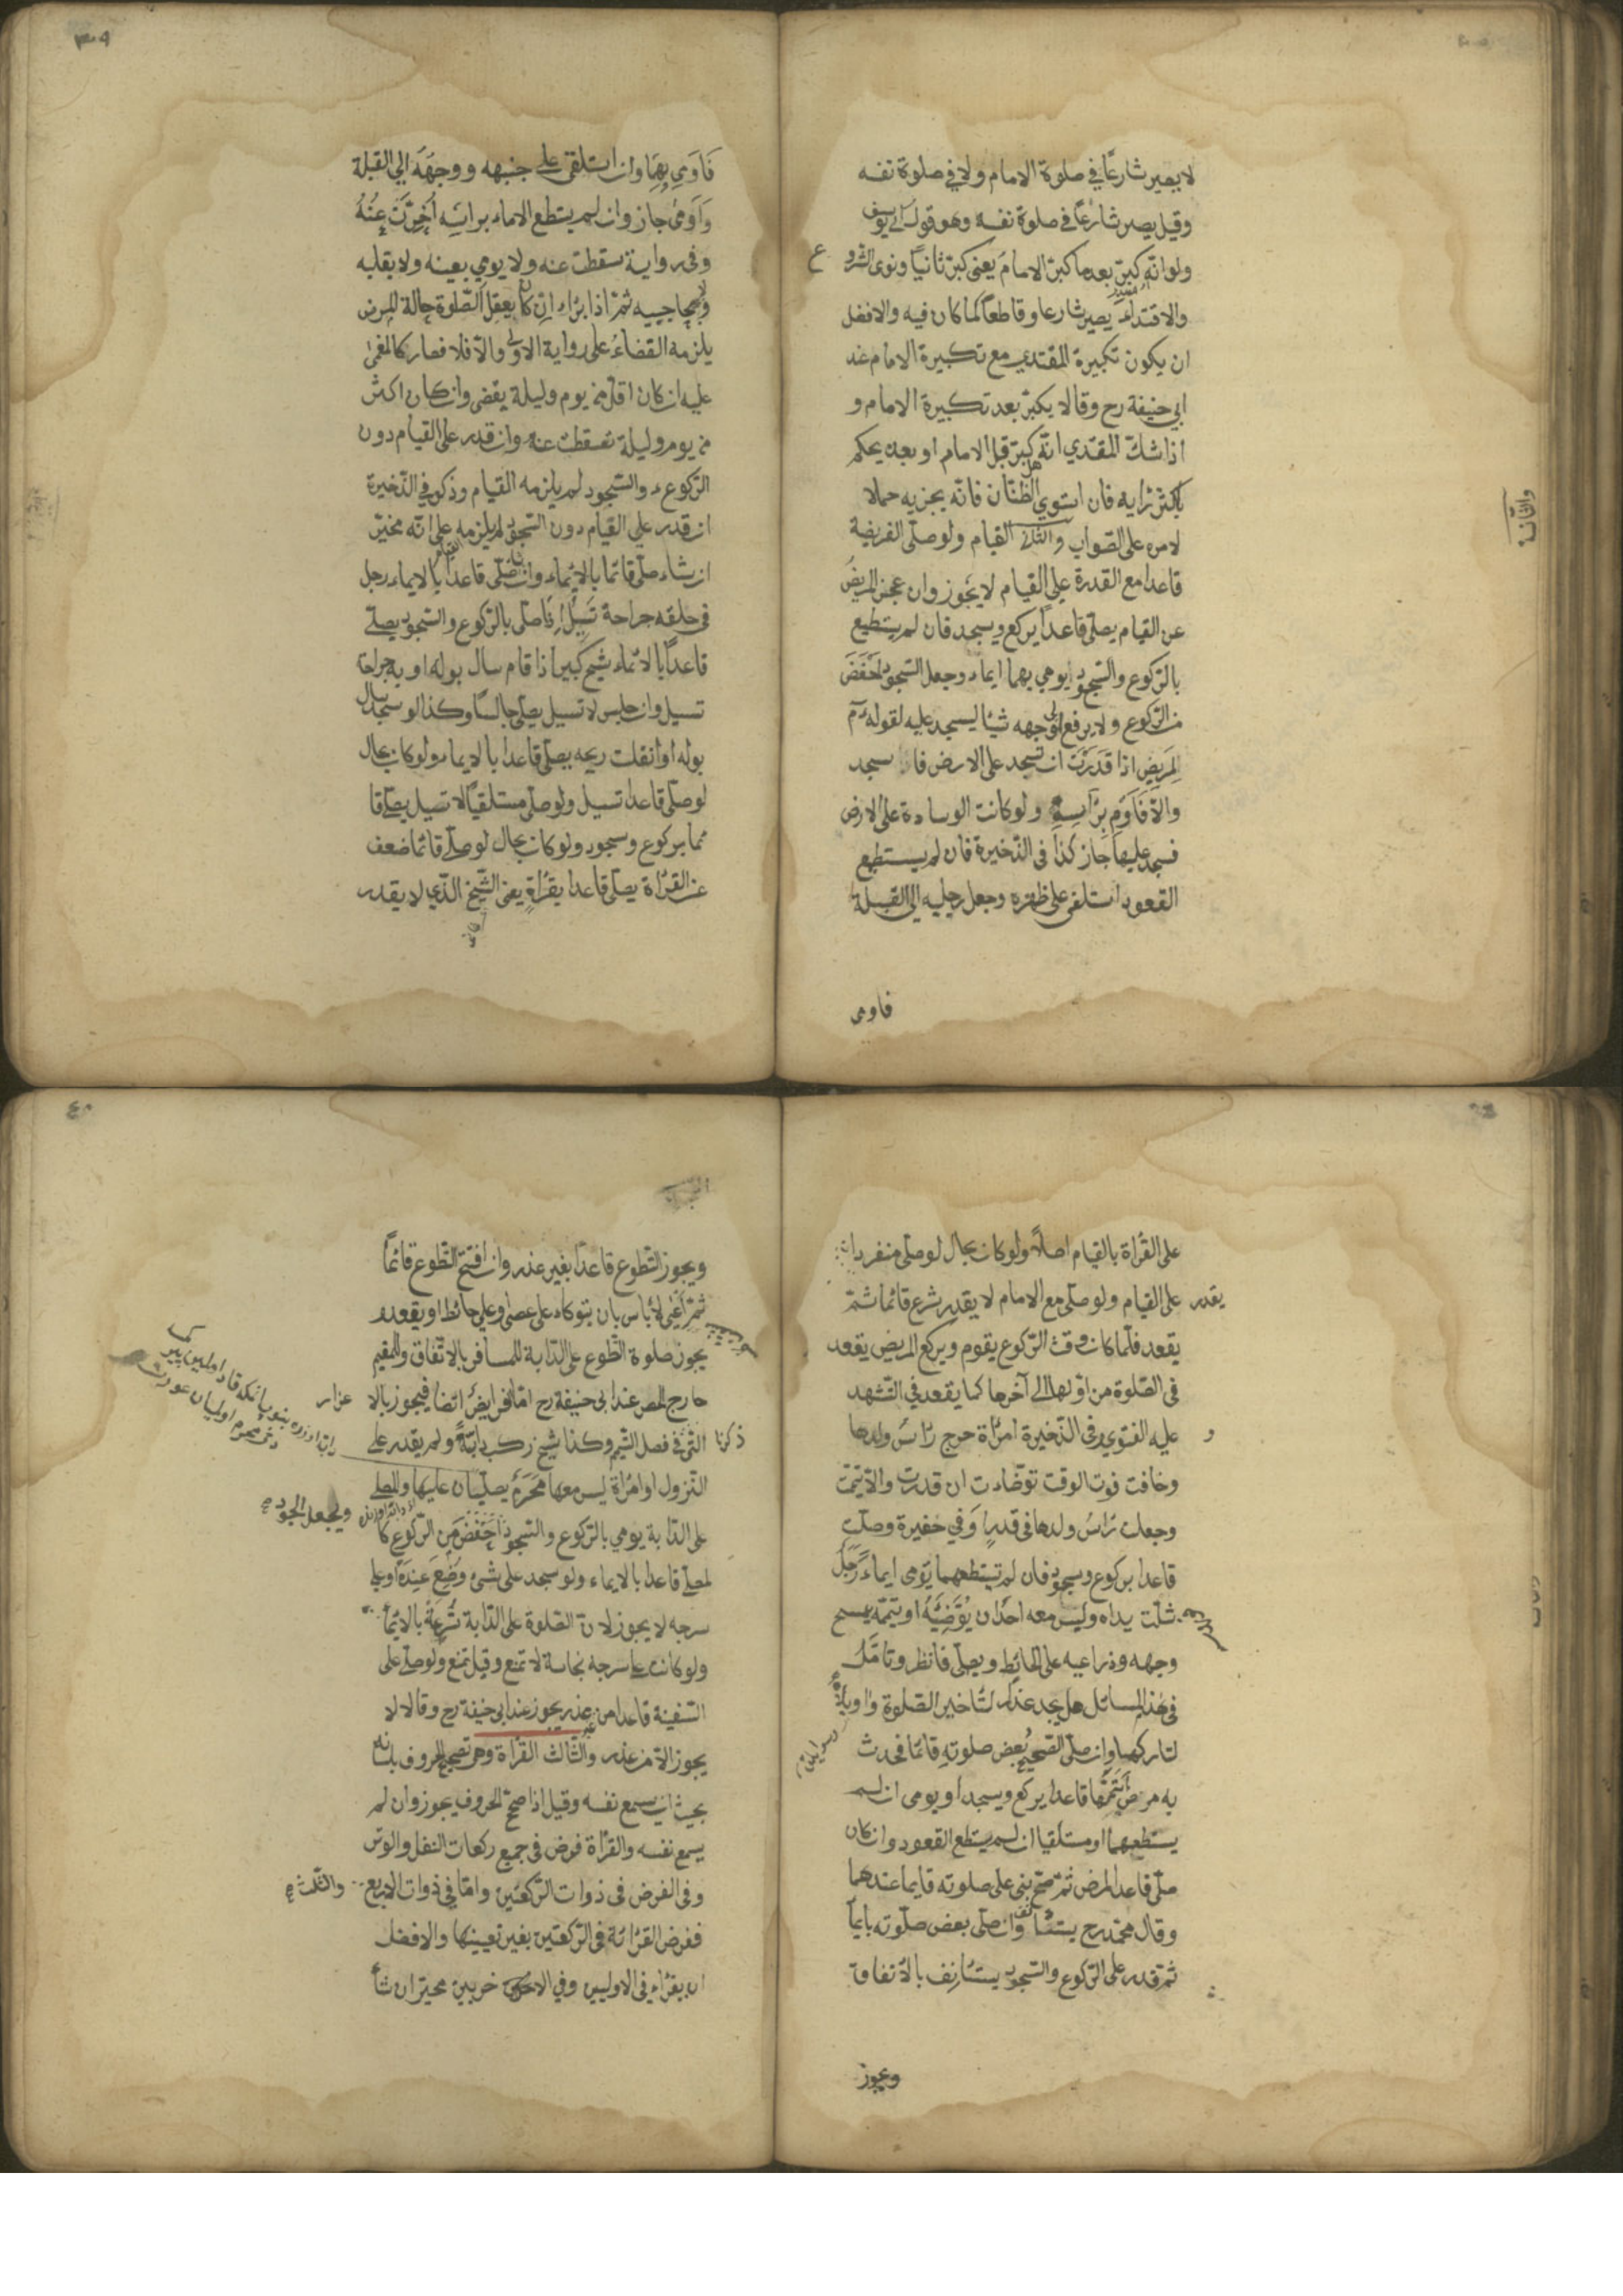 لا يصير شارعًا في صلوة الامام ولا في صلوة نفسه
وقيل يصير شارعًا في صلوة نفسه وهو قول ابي يوسف
ولو انّه كبرّ بعد ما كبرّ الامام يعنى كبرّ ثانيًا ونوى الشرو ع
والاقتداء يصير شارعا وقاطعًا لما كان فيه والافضل
ان يكون تكبيرة المقتدي مع تكبيرة الامام عند
ابي حنيفة رح وقالا يكبرّ بعد تكبيرة الامام و
اذا شكّ المقتدي انّه هل كبرّ قبل الامام او بعده يحكم
باكثر رايه فان استوي الظنّان فانّه يجزيه حملا
لامره على الصّواب والثّانية القيام ولو صلّى الفريضة
قاعدا مع القدرة علي القيام لا يجوز وان عجز المريضُ
عن القيام يصلّى قاعداً يركع ويسجد فان لم يستطيع
بالرّكوع والسّجود يومي بهما ايماء وجعل السّجود اخفَضَ
من الرّكوع ولا يرفع الى وجهه شيئا ليسجد عليه لقوله عم
لمريضٍ اذا قدَرْتَ ان تسجد على الارض فا سجد
والّا فَاَوْمِ بِرَأسِهِ ولو كانت الوسادة على الارض
فسجد عليها جاز كذا في الذّخيرة فان لم يستطيع
القعود استلقى على ظهره وجعل رجليه الى القبلة
فاومى
فَاَوْمي بهما وان استلقى على جنبه ووجهَهُ الي القبلة
وَاَومئ جاز وان لم يستطع الايماء براسِه اُخِّرَتْ عنهُ
وفى رواية سقطت عنه ولا يومي بعينه ولا بقلبه
ولا بحاجبيه ثمّ اذا برَاء ان كان يعقل الصّلوة حالة المرض
يلزمه القضاءُ على رواية الاولى والّا فلا فصار كالمغمىٰ
عليه ان كان اقلّ من يوم وليلة يقضى وان كان اكثر
من يوم وليلة تسقطت عنه وان قدر على القيام دون
الرّكوع والسّجود لم يلزمه القيام وذكر في الذّخيرة
ان قدر علي القيام دون السّجود لم يلزمه القيام على انّه مخيّر
ان شاء صلّى قائما بالايماء وان شاء صلّى قاعدًا بالايماء رجل
في حلقه جراحة تسيل اِذَا صلّى بالرّكوع والسّجود يصلّى
قاعداً بالايماء شيخ كبير اذا قام سال بوله او به جراحة
تسيل وان جلس لا تسيل يصلّى جالسًا وكذا لو سجد سال
بوله او انفلت ريحه يصلّى قاعدا بالايماء ولو كان بحال
لو صلّى قاعدا تسيل ولو صلّى مستلقيًا لا تسيل يصلّى قا
ئما بركوع وسجود ولو كان بحال لو صلّى قائما ضعف
عن القرّاة يصلّى قاعدا بقرَاةٍ يعنى الشّيخ الذّي لا يقدر
على القرَّاة بالقيام اصلاً ولو كان بحال لو صلّى منفردا
يقدر على القيام ولو صلّى مع الامام لا يقدر يشرع قائما ثمّ
يقعد فلّما كان وقت الرّكوع يقوم ويركع المريض يقعد
في الصّلوة من اوّلها الى آخرها كما يقعد في التّشهد
و عليه الفتوي وفى الذّخيرة امرأة خرج رأس ولدها
وخافت فوت الوقت توضّاءت ان قدرت والّا تيمّت
وجعلت رأسُ ولدها في قدرٍ او في حفيرة وصلّت
قاعدا بركوع وسجود فان لم تستطعهما يؤمى ايماءً رَجُل
شلّت يداه وليس معه احدٌ ان يُوَضّيَهُ او يتيمّه يمسح
وجهه وذراعيه على الحائط ويصلّى فانظر وتامّل
في هذا المسائل هل يجد عذراً لتأخير الصّلوة وا ويلاه
لتاركها وان صلّى الصّحيح بعض صلوته قائما فحدث
به مرض اَتَمَّهَا قاعدا يركع ويسجد او يومى ان لم
يستطعهما او مستلقيا ان لم يستطع القعود وان كان
صلّى قاعدا لمرض ثمّ صحّ بنى على صلوته قايما عندهما
وقال محمّد رح يستأنف وان صلّى بعض صلّوته بايماً
ثمّ قدر على الرّكوع والسّجود يستأنِف بالاتفاق
ويجوز
ويجوز التّطوع قاعدًا بغير عذر وان افتتح التّطوع قائمًا
ثمّ اَعْيٰى لا بأس بان يتوكاء على عصا وعلي حائط او يقعد و
يجوز صلوة التّطوع على الدّابة للمسافر بالاتّفاق والمقيم
خارج المصر عند ابى حنيفة رح امّا الفرايضُ ايضا فيجوز بالا عزار
ذكرنا التّى في فصل التّيمّم وكذا شيخ ركب دابّةً ولم يقدر على
النّزول او امرأة ليس معها مَحْرَمٌ يصلّيان عليها والمصلّى
على الدّابة يومي بالرّكوع والسّجود ويجعل السّجود اخفَضَ مِن الرّكوع كا
لمصلّى قاعدا بالايماء ولو سجد على شئ وضعَ عندَهُ او على
سرجه لا يجوز لان الصّلوة على الدّابة شُرِعَةْ بالايمأ
ولو كانت على سرجه نجاسة لا تمنع وقيل تمنع ولو صلّى على
السّفينة قاعدا من غير عذر يجوز عند ابى حنيفة رح وقالا لا
يجوز الّا من عذر والثّالث القرأة وهو تصحيح الحروف بلسانه
بحيث ان يسمع نفسه وقيل اذا صحّ الحروف يجوز وان لم
يسمع نفسه والقرّاة فرض في جميع ركعات النفل والوتر
وفى الفرض في ذوات الرّكعتين وامّا في ذوات الاربع والثّلث
ففرض القرائة في الرّكعتين بغير تعيينها والافضل
ان يقرَاء في الاوليين وفي الاخريين مخيّر ان شأ